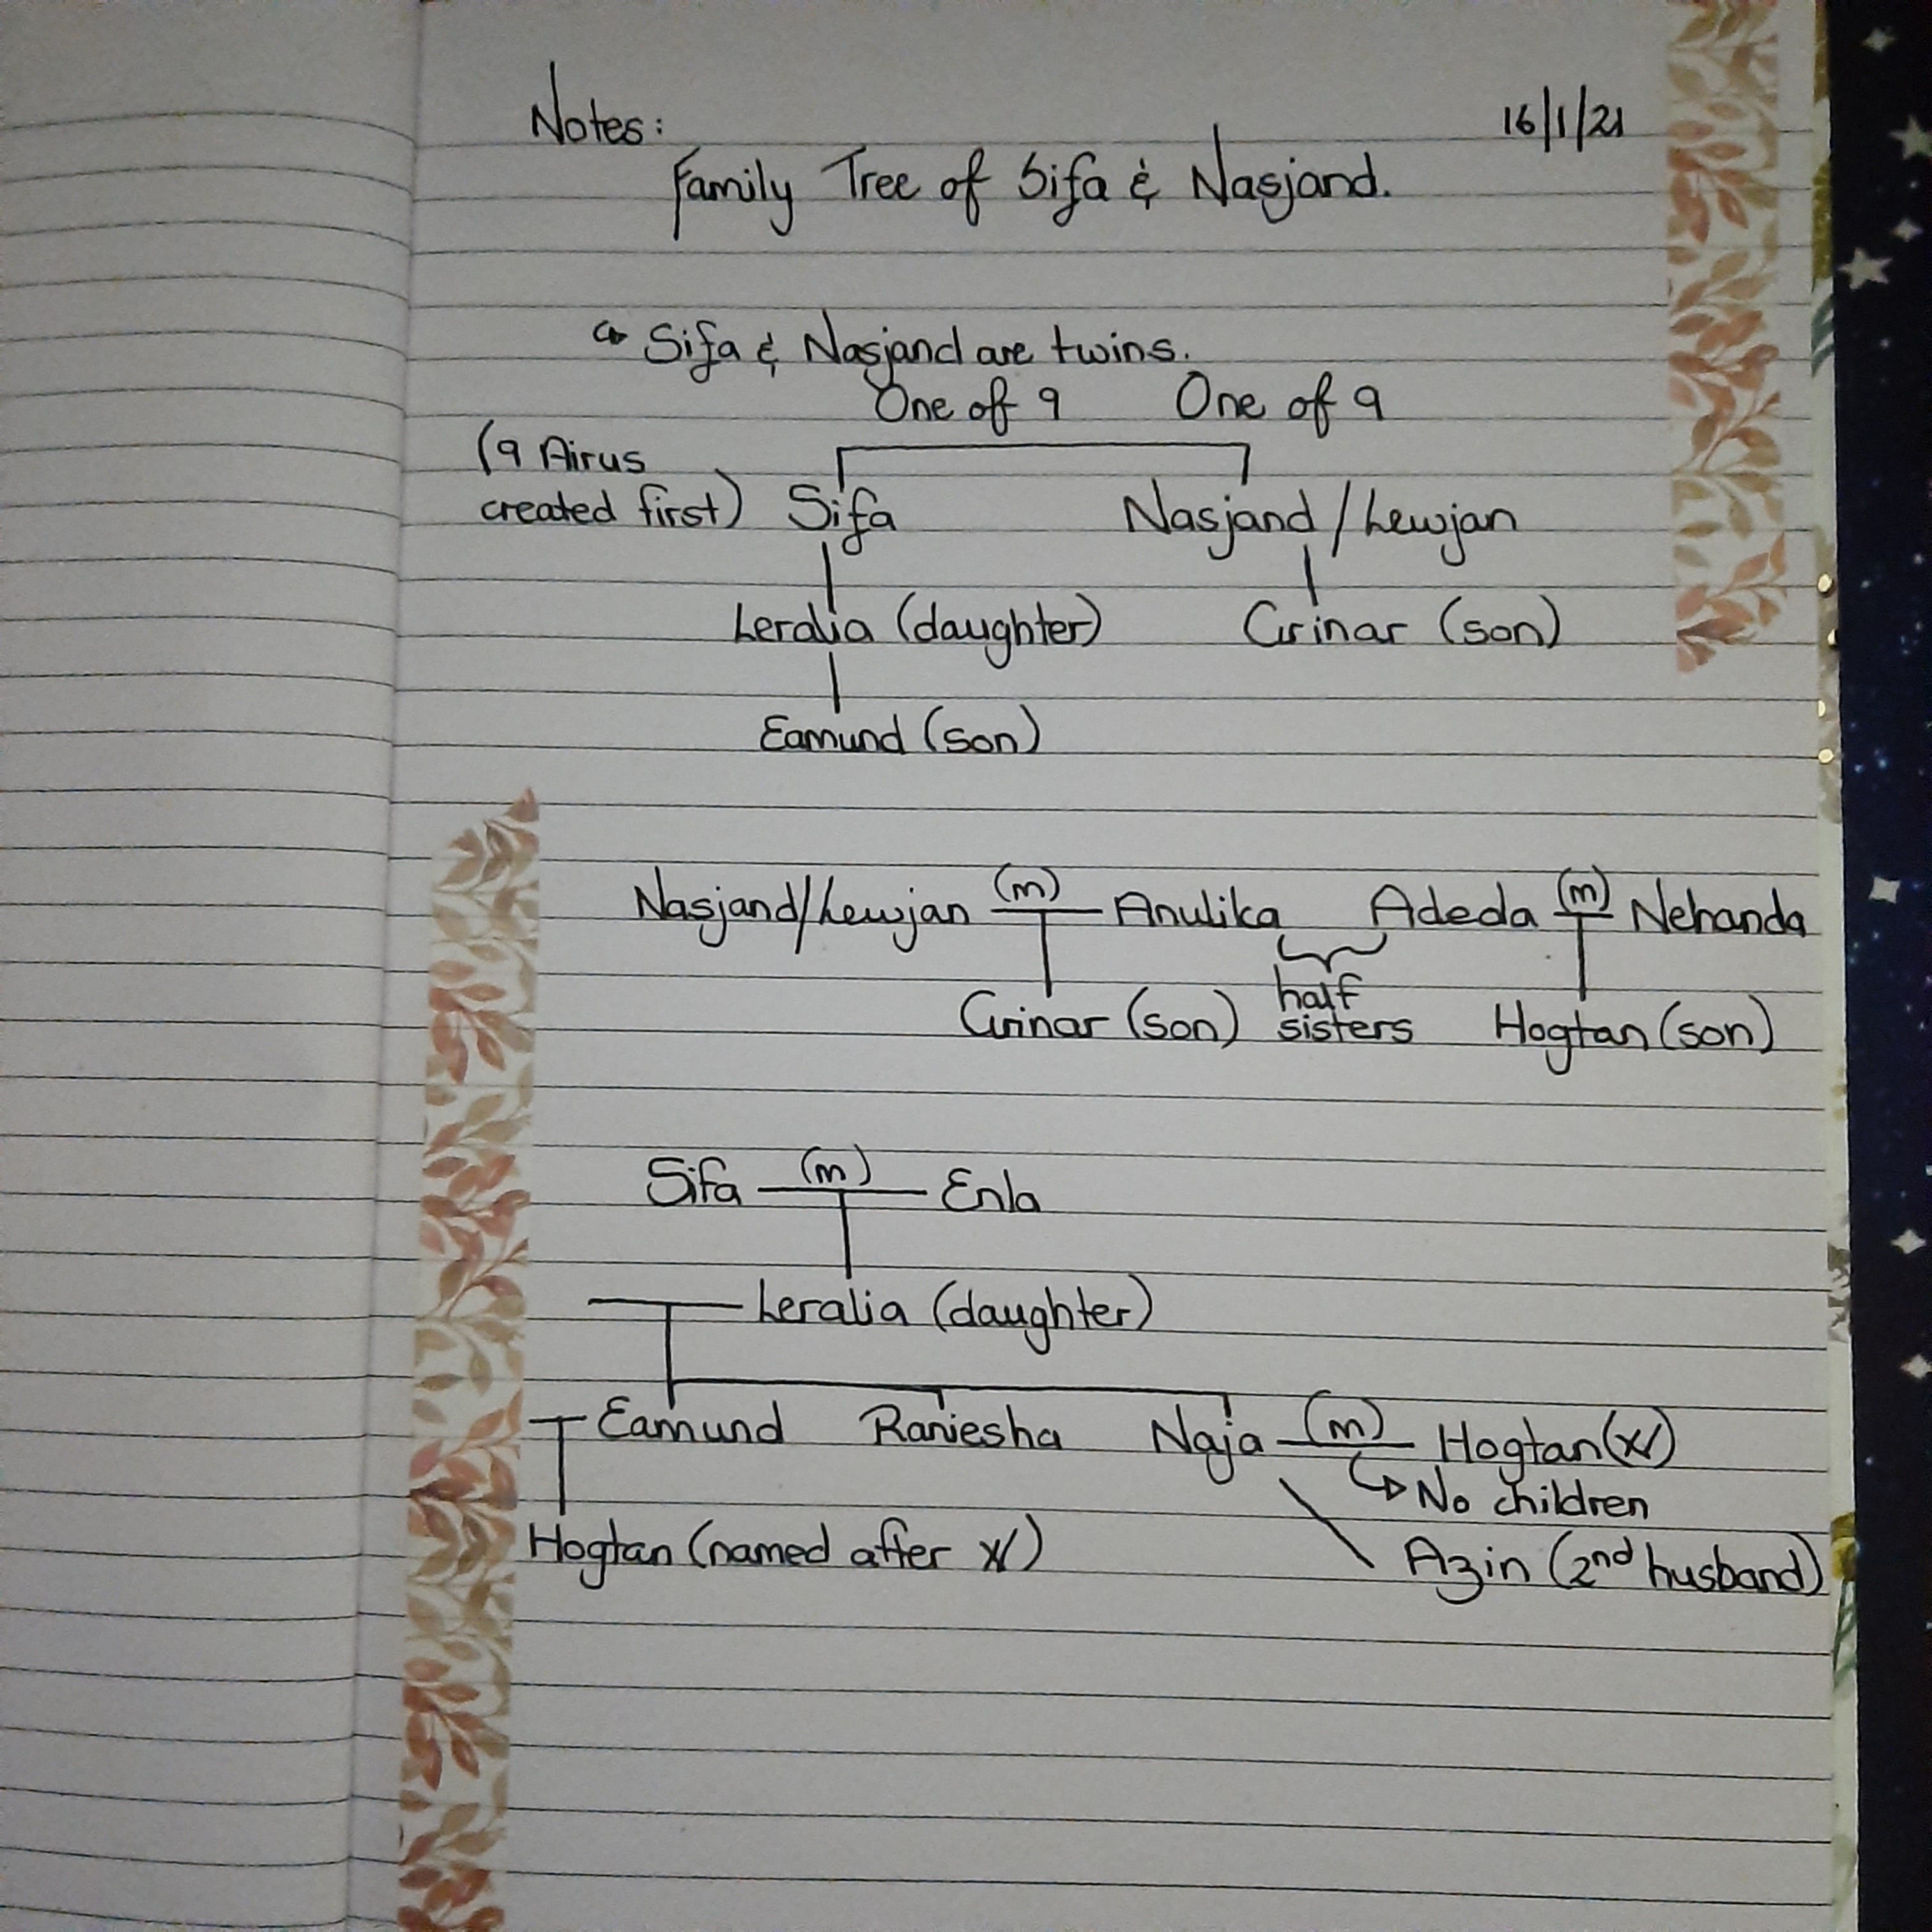 Notes:
16/1/21
Family Tree of Sifa & Nasjand.
Sifa & Nasjand are twins.
One of 9 One of 9
(9 Airus
created first) Sifa Nasjand/Lewjan
Leralia (daughter) Cirinar (son)
Eamund (son)
Nasjand/Lewjan (m) Anulika Adeda (m) Nehanda
half
Cirinar (son) sisters Hogtan (son)
Sifa (m) Enla
Leralia (daughter)
Eamund Raniesha Naja (m) Hogtan
No children
Hogtan (named after
Azin (2nd husband)